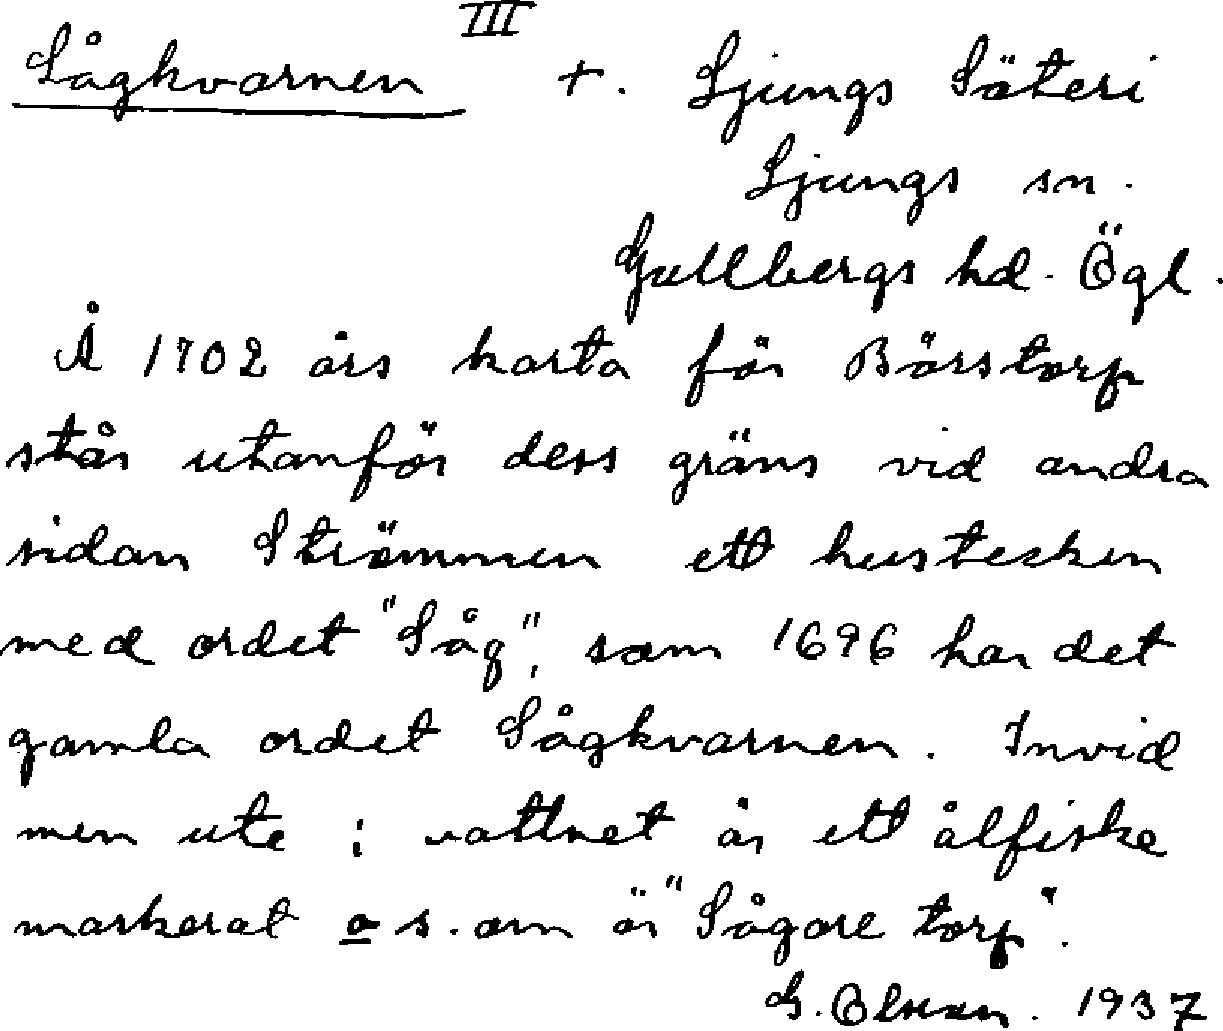 III
Sågkvarnen + . Ljungs Säteri
Ljungs sn.
Gullbergs hd. Ögl.
Å 1702 års karta för Börstorp
står utanför dess gräns vid andra
sidan Strömmen ett hustecken
med ordet "Såg", som 1696 har det
gamla ordet Sågkvarnen. Invid
men ute i vattnet är ett ålfiske
markerat o s. om är "Sågare torp".
G. Olsson. 1937